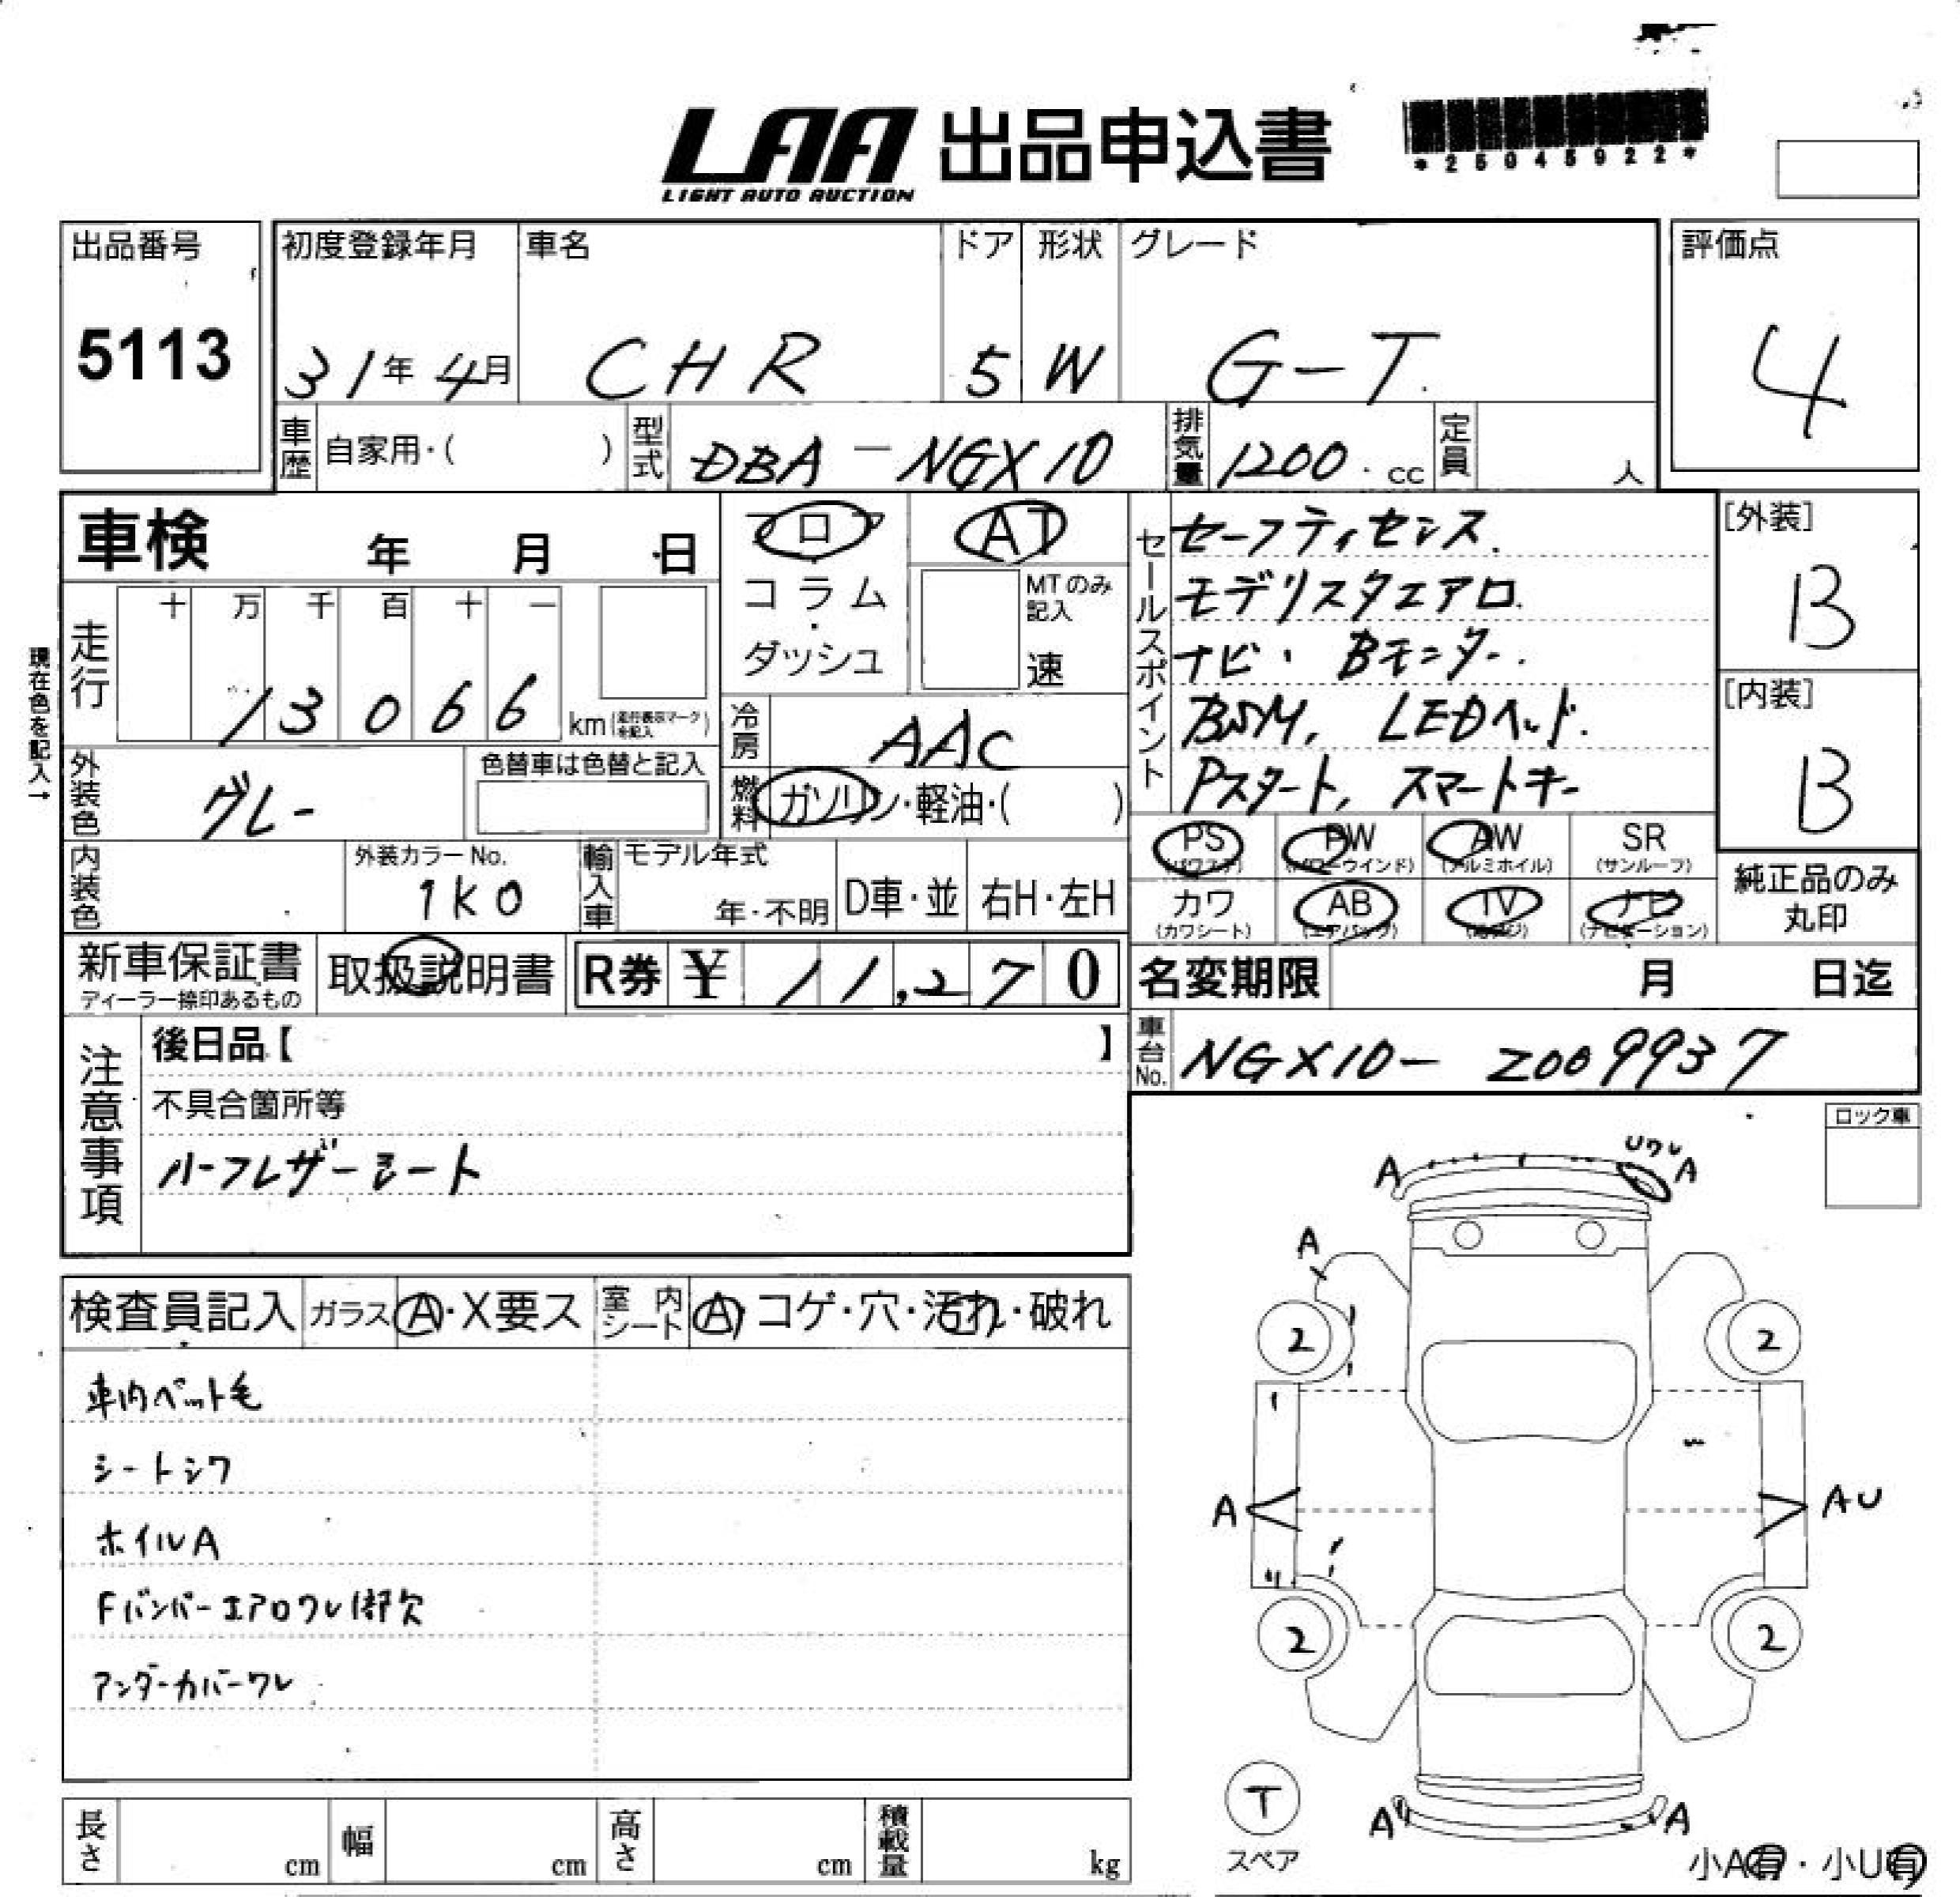 LAA 出品申込書
LIGHT AUTO AUCTION
*25045922*
出品番号
5113
初度登録年月
31年4月
車名
CHR
ドア
5
形状
W
グレード
G-T.
評価点
4
車歴
自家用・( )
型式
DBA-NGX10
排気量
1200.cc
定員
人
車検 年 月 日
フロア
コラム
・
ダッシュ
AT
MTのみ記入
速
走行
十 万 千 百 十 一
13066 km(走行表示マークを記入)
現在色を記入→
冷房
AAC
燃料
ガソリン・軽油・( )
外装色
グレー
色替車は色替と記入
内装色
外装カラーNo.
1K0
輸入車
モデル年式
年・不明
D車・並
右H・左H
セールスポイント
セーフティセンス.
モデリスタエアロ.
ナビ・Bモニター.
BSM, LEDヘッド.
Pスタート, スマートキー
[外装]
B
[内装]
B
PS
(パワステ)
PW
(パワーウインド)
AW
(アルミホイル)
SR
(サンルーフ)
カワ
(カワシート)
AB
(エアバック)
TV
ナビ
(ナビゲーション)
純正品のみ
丸印
新車保証書
ディーラー捺印あるもの
取扱説明書
R券 ¥ 11,270
名変期限 月 日迄
車台No.
NGX10-2009937
注意事項
後日品【 】
不具合箇所等
ハーフレザーシート
ロック車
検査員記入
ガラス A・X要ス
室内シート A・コゲ・穴・汚れ・破れ
車内ペット毛
シートシワ
ホイルA
Fバンパーエアロワレ1部欠
アンダーカバーワレ
A
Uワレ
A
A
2
2
A
AU
2
2
T
スペア
A
A
小A有・小U有
長さ cm
幅 cm
高さ cm
積載量 kg